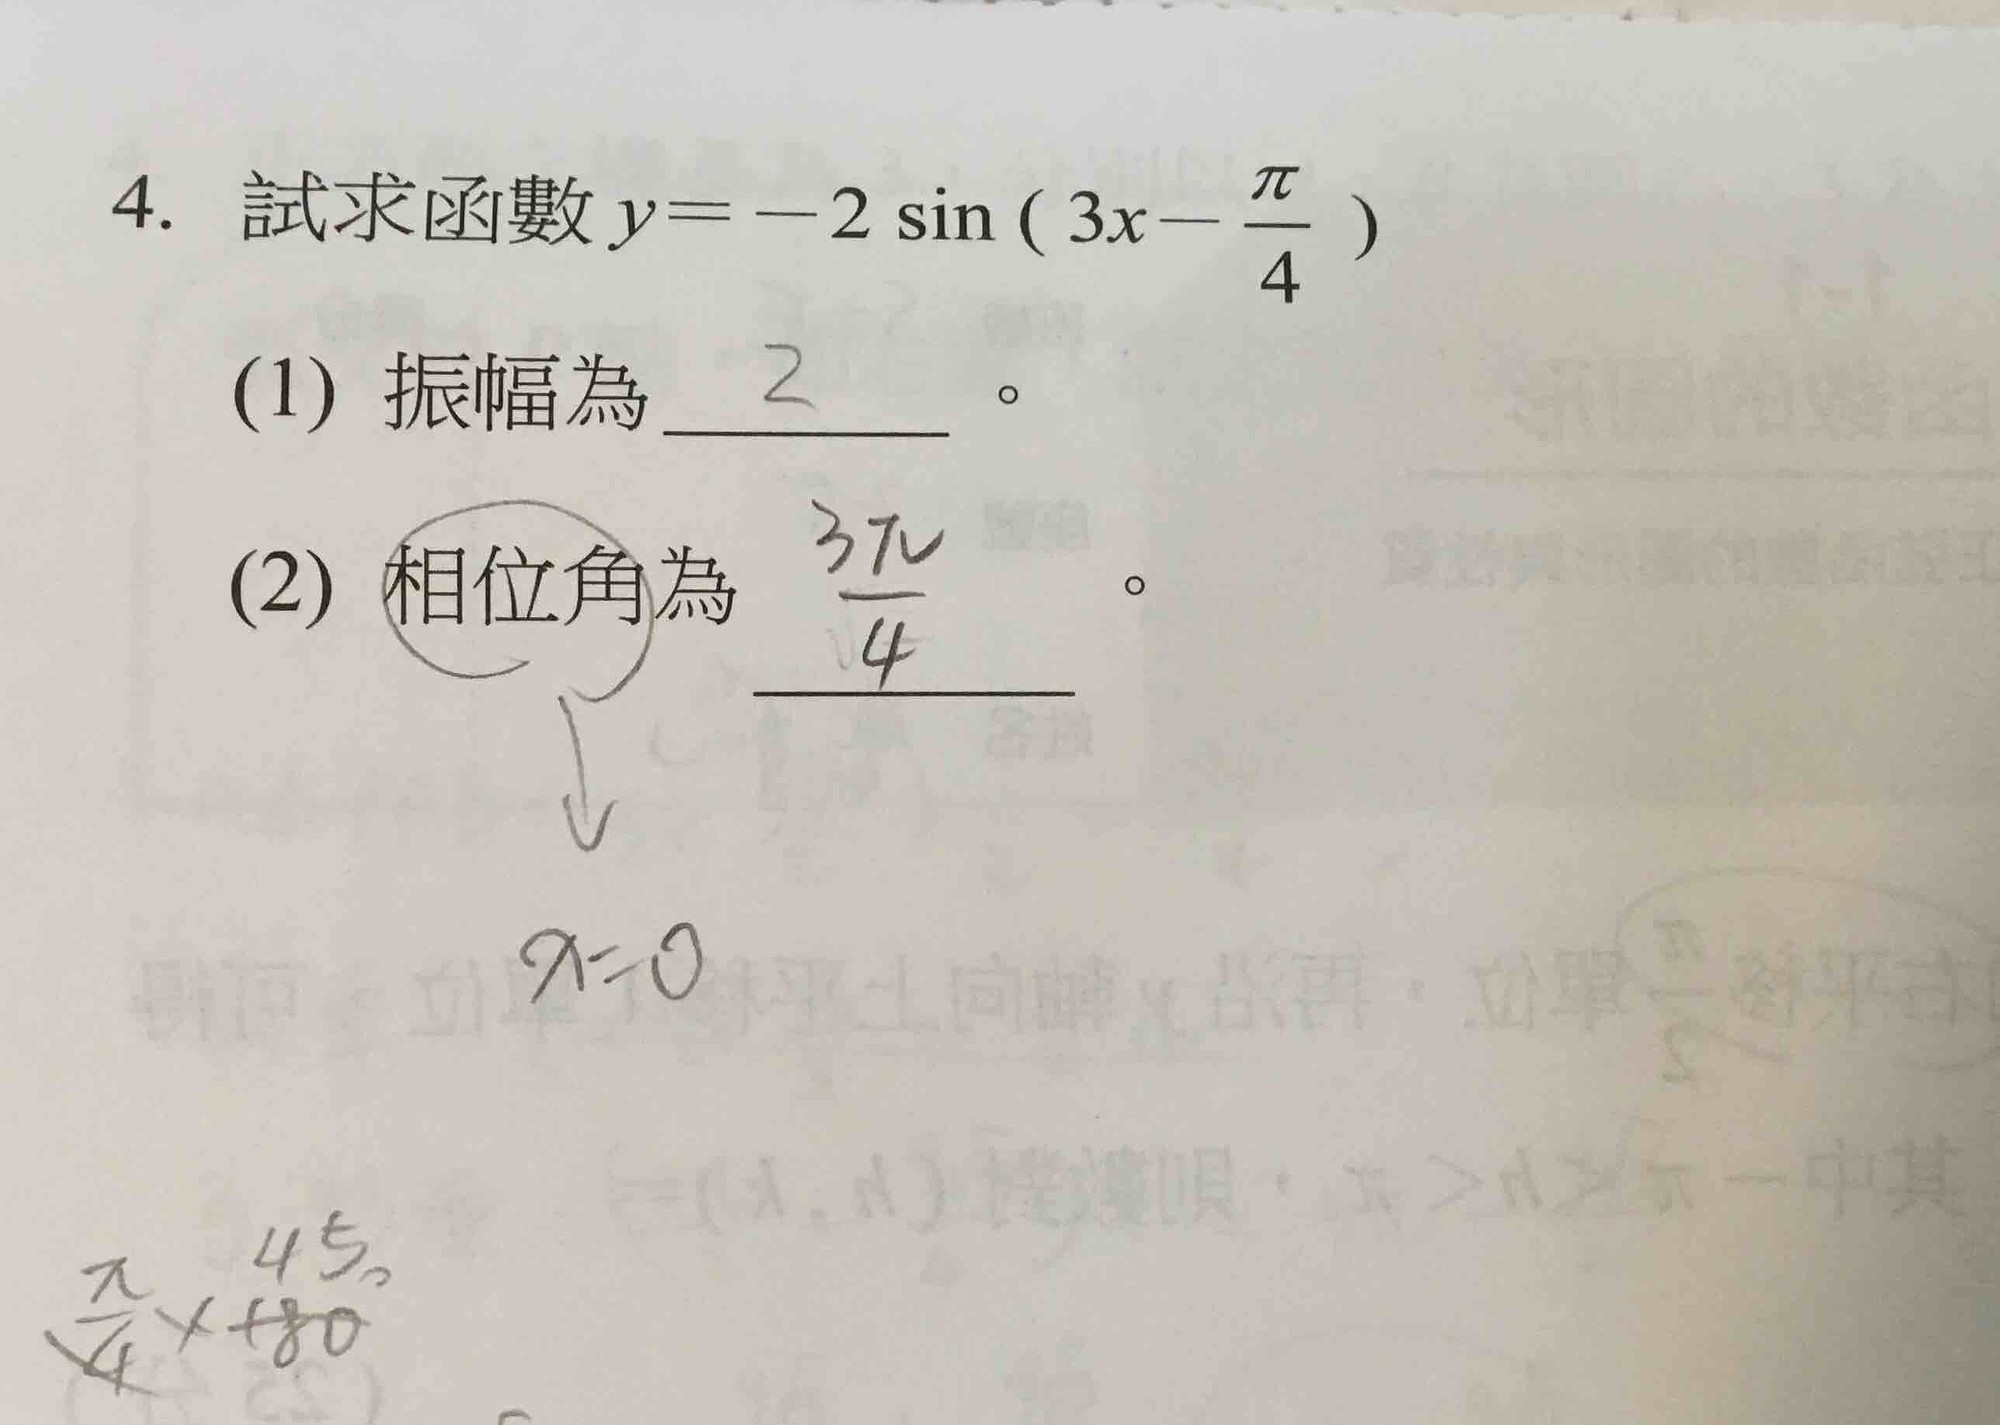 4. 試求函數 y=-2 sin ( 3x- π/4 )
(1) 振幅為 2 。
(2) 相位角為 3π/4 。
x=0
45
π/4 × 180